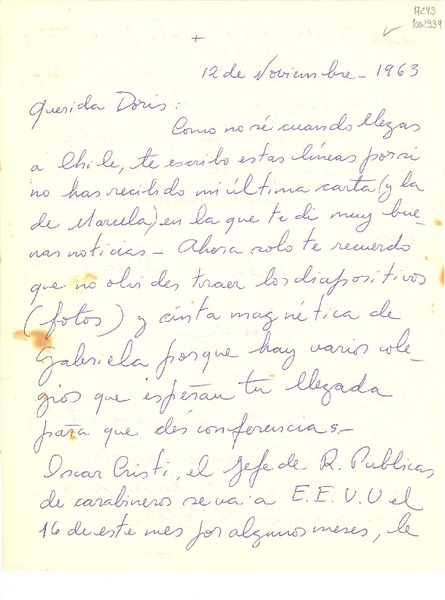 17243
1002934
12 de Noviembre - 1963
Querida Doris:
Como no sé cuando llegas
a Chile, te escribo estas líneas por si
no has recibido mi última carta (y la
de Marcela) en la que te di muy bue-
nas noticias - Ahora solo te recuerdo
que no olvides traer los diapositivos
(fotos) y cinta magnética de
Gabriela porque hay varios cole-
gios que esperan tu llegada
para que dés conferencias.-
Oscar Cristi, el Jefe de R. Publicas
de carabineros se va a E.E.V.U el
16 de este mes por algunos meses, le